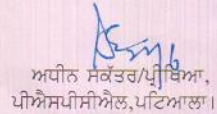 ਅਧੀਨ ਸਕੱਤਰ/ਪ੍ਰੀਖਿਆ,
ਪੀਐਸਪੀਸੀਐਲ,ਪਟਿਆਲਾ।